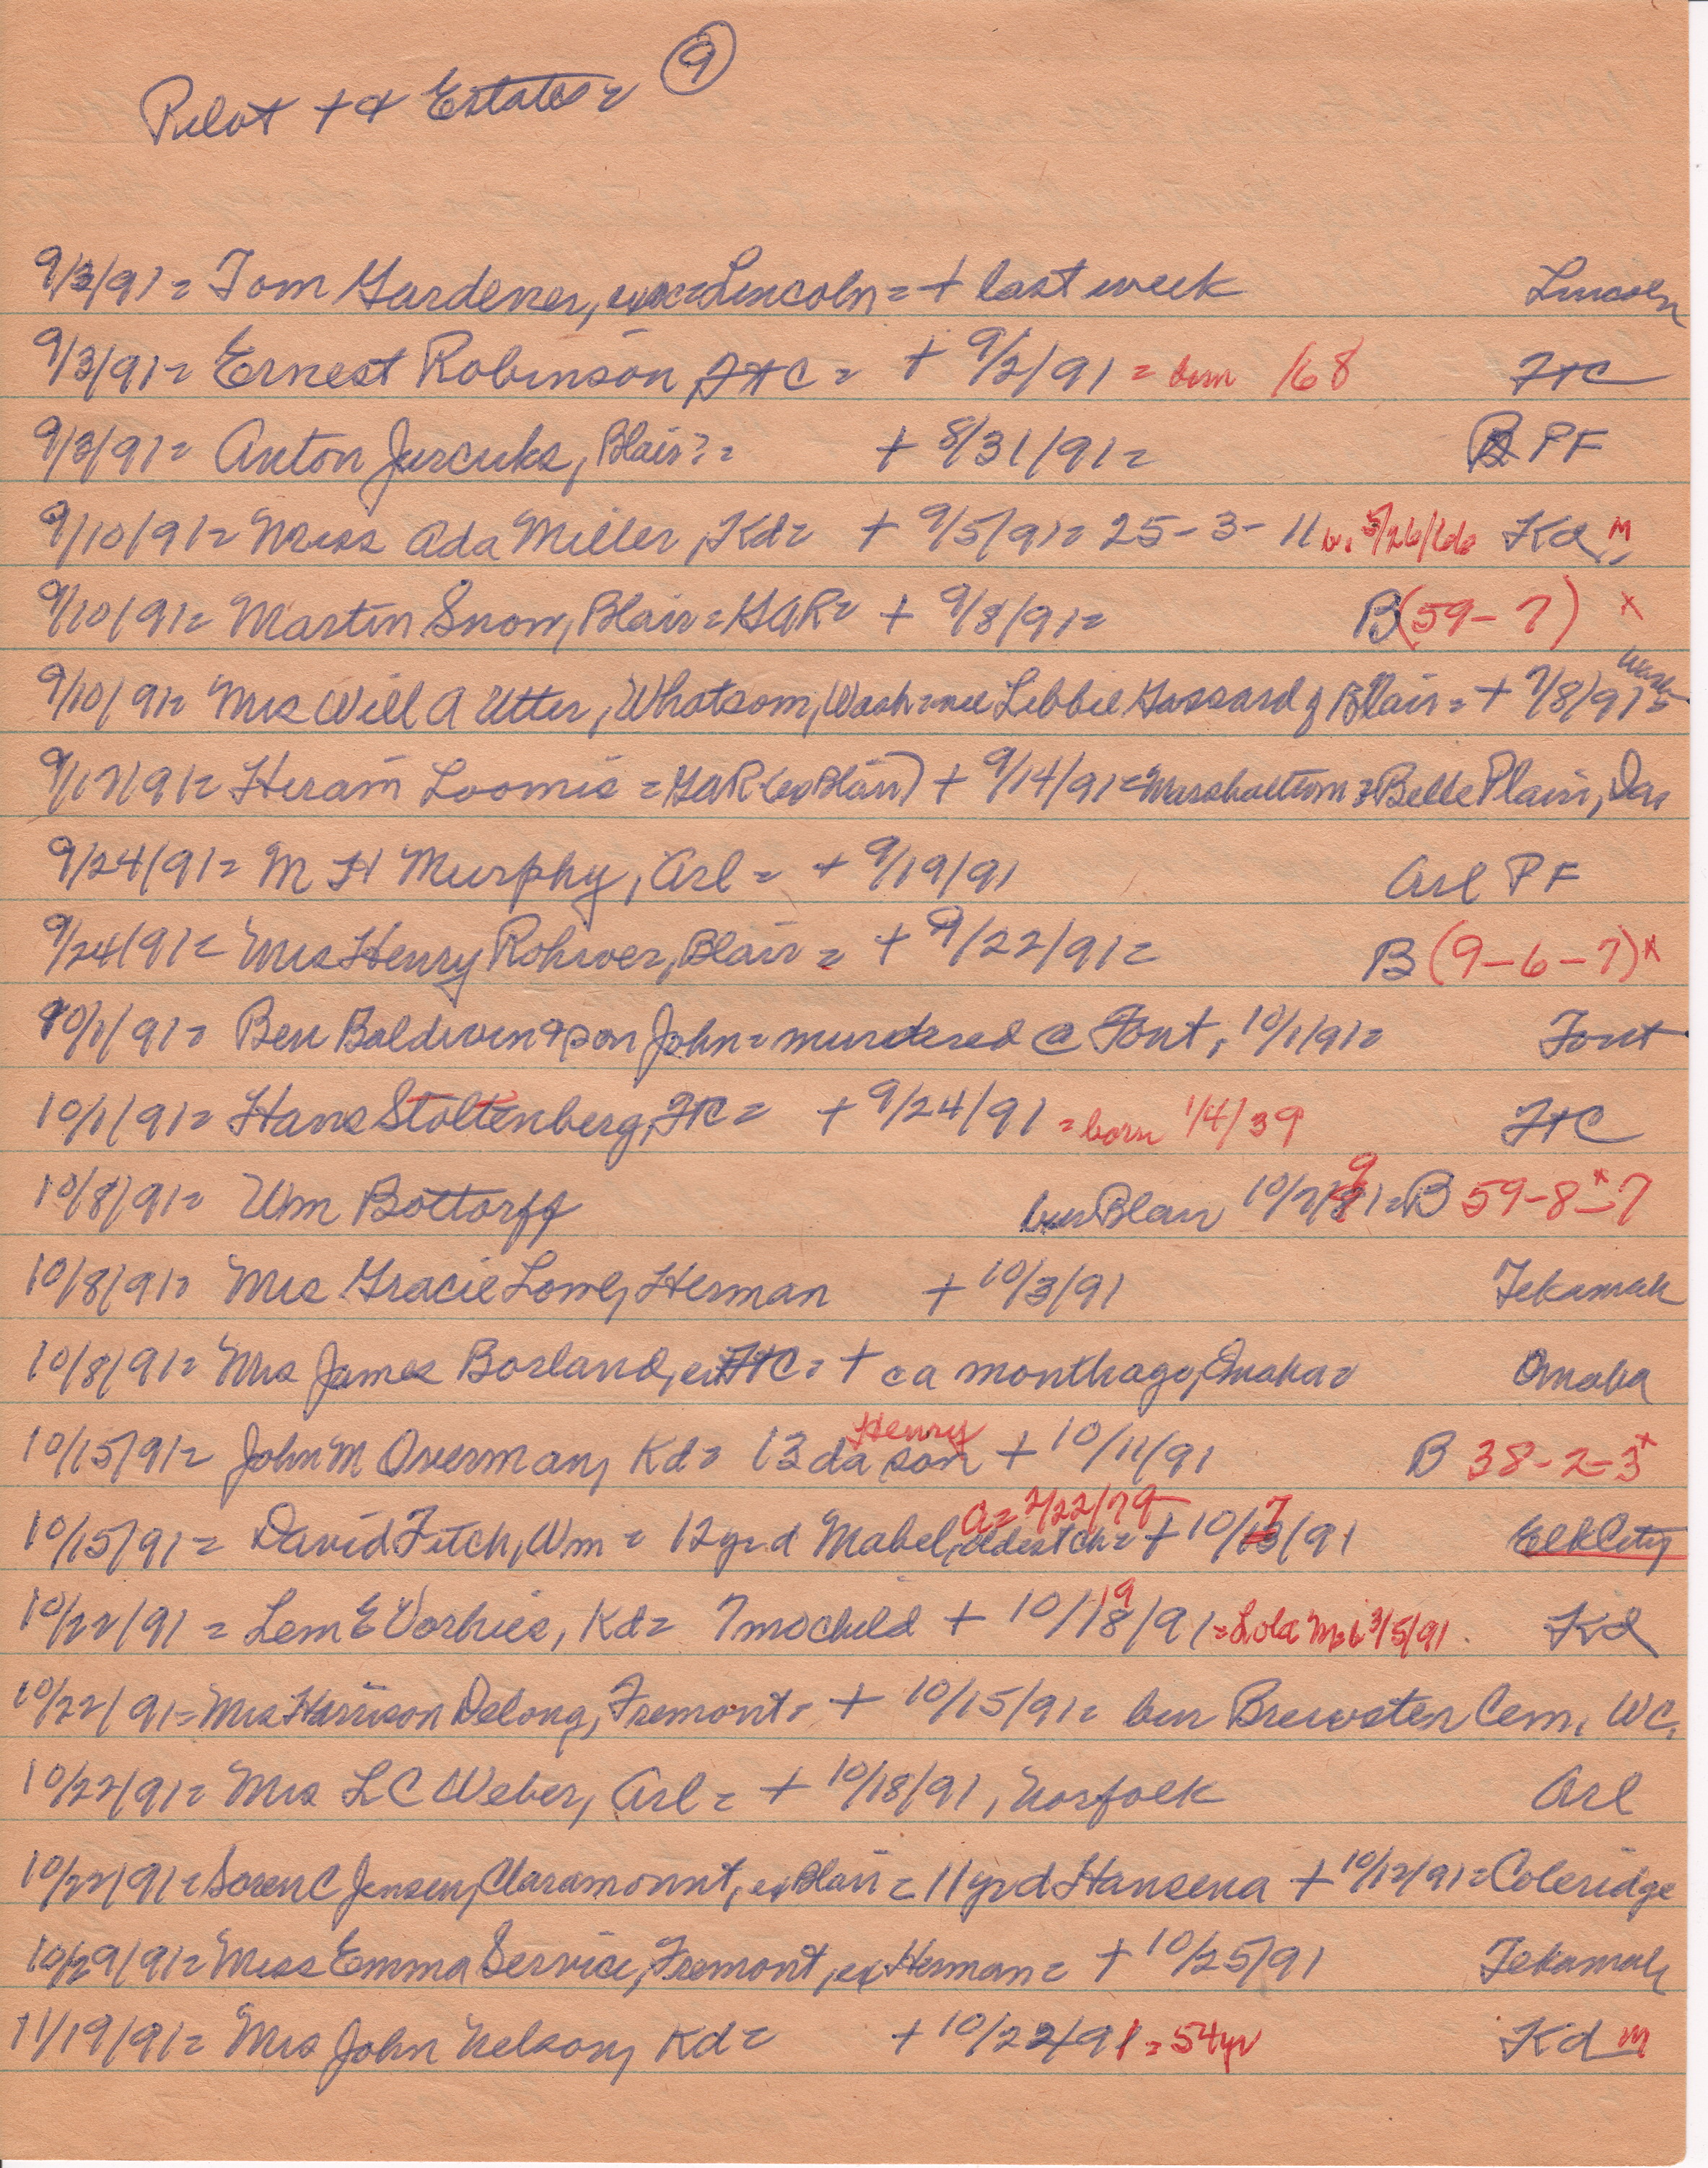 Pilot + & Estates = 9
9/3/91 = Tom Gardener, Lincoln = + last week Lincoln
9/3/91 = Ernest Robinson, FtC = + 9/2/91 = born /68 FtC
9/3/91 = Anton Jurcuks, Blair? = + 8/31/91 = B PF
9/10/91 = Miss Ada Miller, Kd = + 9/5/91 = 25-3-11 b. 5/26/66 Kd M
9/10/91 = Martin Snow, Blair = GAR = + 9/8/91 = B (59-7) x
9/10/91 = Mrs Will A Utter, Whatsom, Wash = nee Libbie Gossard of Blair = + 7/8/91 = Wash
9/17/91 = Hiram Loomis = GAR (ex Blair) + 9/14/91 = Belle Plain, Ia
9/24/91 = M H Murphy, Arl = + 9/19/91 Arl PF
9/24/91 = Mrs Henry Rohwer, Blair = + 9/22/91 = B (9-6-7) x
10/1/91 = Ben Baldwin & son John = murdered @ Font, 10/1/91 = Font
10/1/91 = Hans Stoltenberg, FtC = + 9/24/91 = born 1/4/39 FtC
10/8/91 = Wm Bottorff bur Blair 10/2/91 = B 59-8-7 x
10/8/91 = Mrs Gracie Lowe, Herman + 10/3/91 Tekamah
10/8/91 = Mrs James Borland, ex FtC = + ca month ago, Omaha = Omaha
10/15/91 = John M Overman, Kd = 13 da son Henry + 10/11/91 B 38-2-3 x
10/15/91 = David Fitch, Wm = 12 yr d Mabel, oldest ch = a = 2/22/79 + 10/7/91 Elk City
10/22/91 = Lem E Vorhies, Kd = 7 mo child + 10/19/91 = Lola M = b 3/5/91. Kd
10/22/91 = Mrs Harrison Delong, Fremont = + 10/15/91 = bur Brewster Cem, WC,
10/22/91 = Mrs L C Weber, Arl = + 10/18/91, Norfolk Arl
10/22/91 = Soren C Jensen, Claramount, ex Blair = 11 yr d Hansena + 10/12/91 = Coleridge
10/29/91 = Miss Emma Service, Fremont, ex Herman = + 10/25/91 Tekamah
11/19/91 = Mrs John Nelson, Kd = + 10/22/91 = 54 yr Kd M